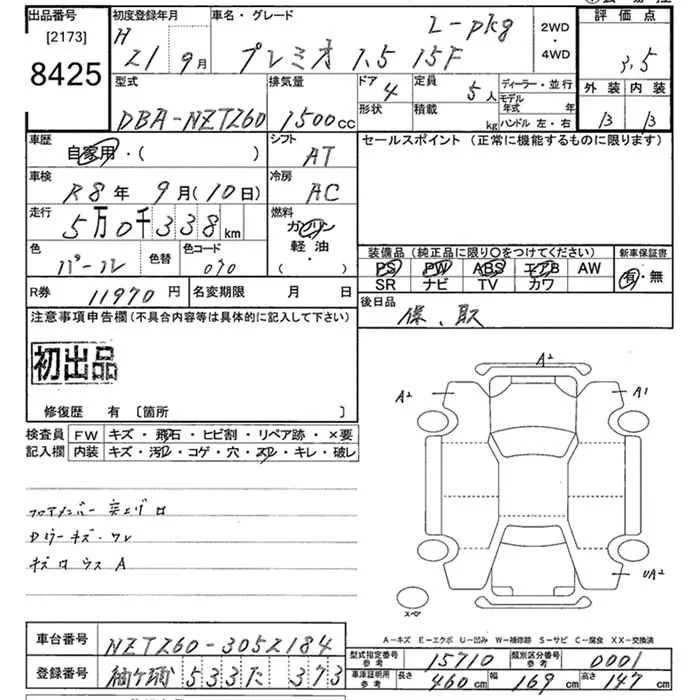 出品番号
[2173]
8425
初度登録年月
H
21 9月
車名・グレード
L-pkg
プレミオ 1.5 15F
2WD
・
4WD
評価点
3.5
外装 内装
B B
型式
DBA-NZT260
排気量
1500cc
ドア
4
形状
定員
5人
積載
kg
ディーラー・並行
モデル年式 年
ハンドル 左・右
車歴
自家用・( )
シフト
AT
セールスポイント (正常に機能するものに限ります)
車検
R8年 9月(10日)
冷房
AC
走行
5万0千338km
燃料
ガソリン
軽・油
・( )
色
パール
色替
色コード
070
装備品 (純正品に限り○をつけてください)
PS PW ABS エアB AW
SR ナビ TV カワ
新車保証書
有・無
R券 11970円
名変期限 月 日
後日品
保、取
注意事項申告欄(不具合内容等は具体的に記入して下さい)
初出品
修復歴 有 [箇所 ]
検査員
記入欄
FW キズ・飛石・ヒビ割・リペア跡・×要
内装 キズ・汚・コゲ・穴・スレ・キレ・破レ
フロアメンバー 突上ゲ ロ
Dドアーキズ・ワレ
A2
A2
A1
UA2
スペア
A-キズ E-エクボ U-凹み W-補修跡 S-サビ C-腐食 XX-交換済
車台番号 NZT260-3052184
登録番号 533た 373
型式指定番号
参考
15710
類別区分番号
参考
0001
車庫証明用
参考
長さ 460cm 幅 169cm 高さ 147cm